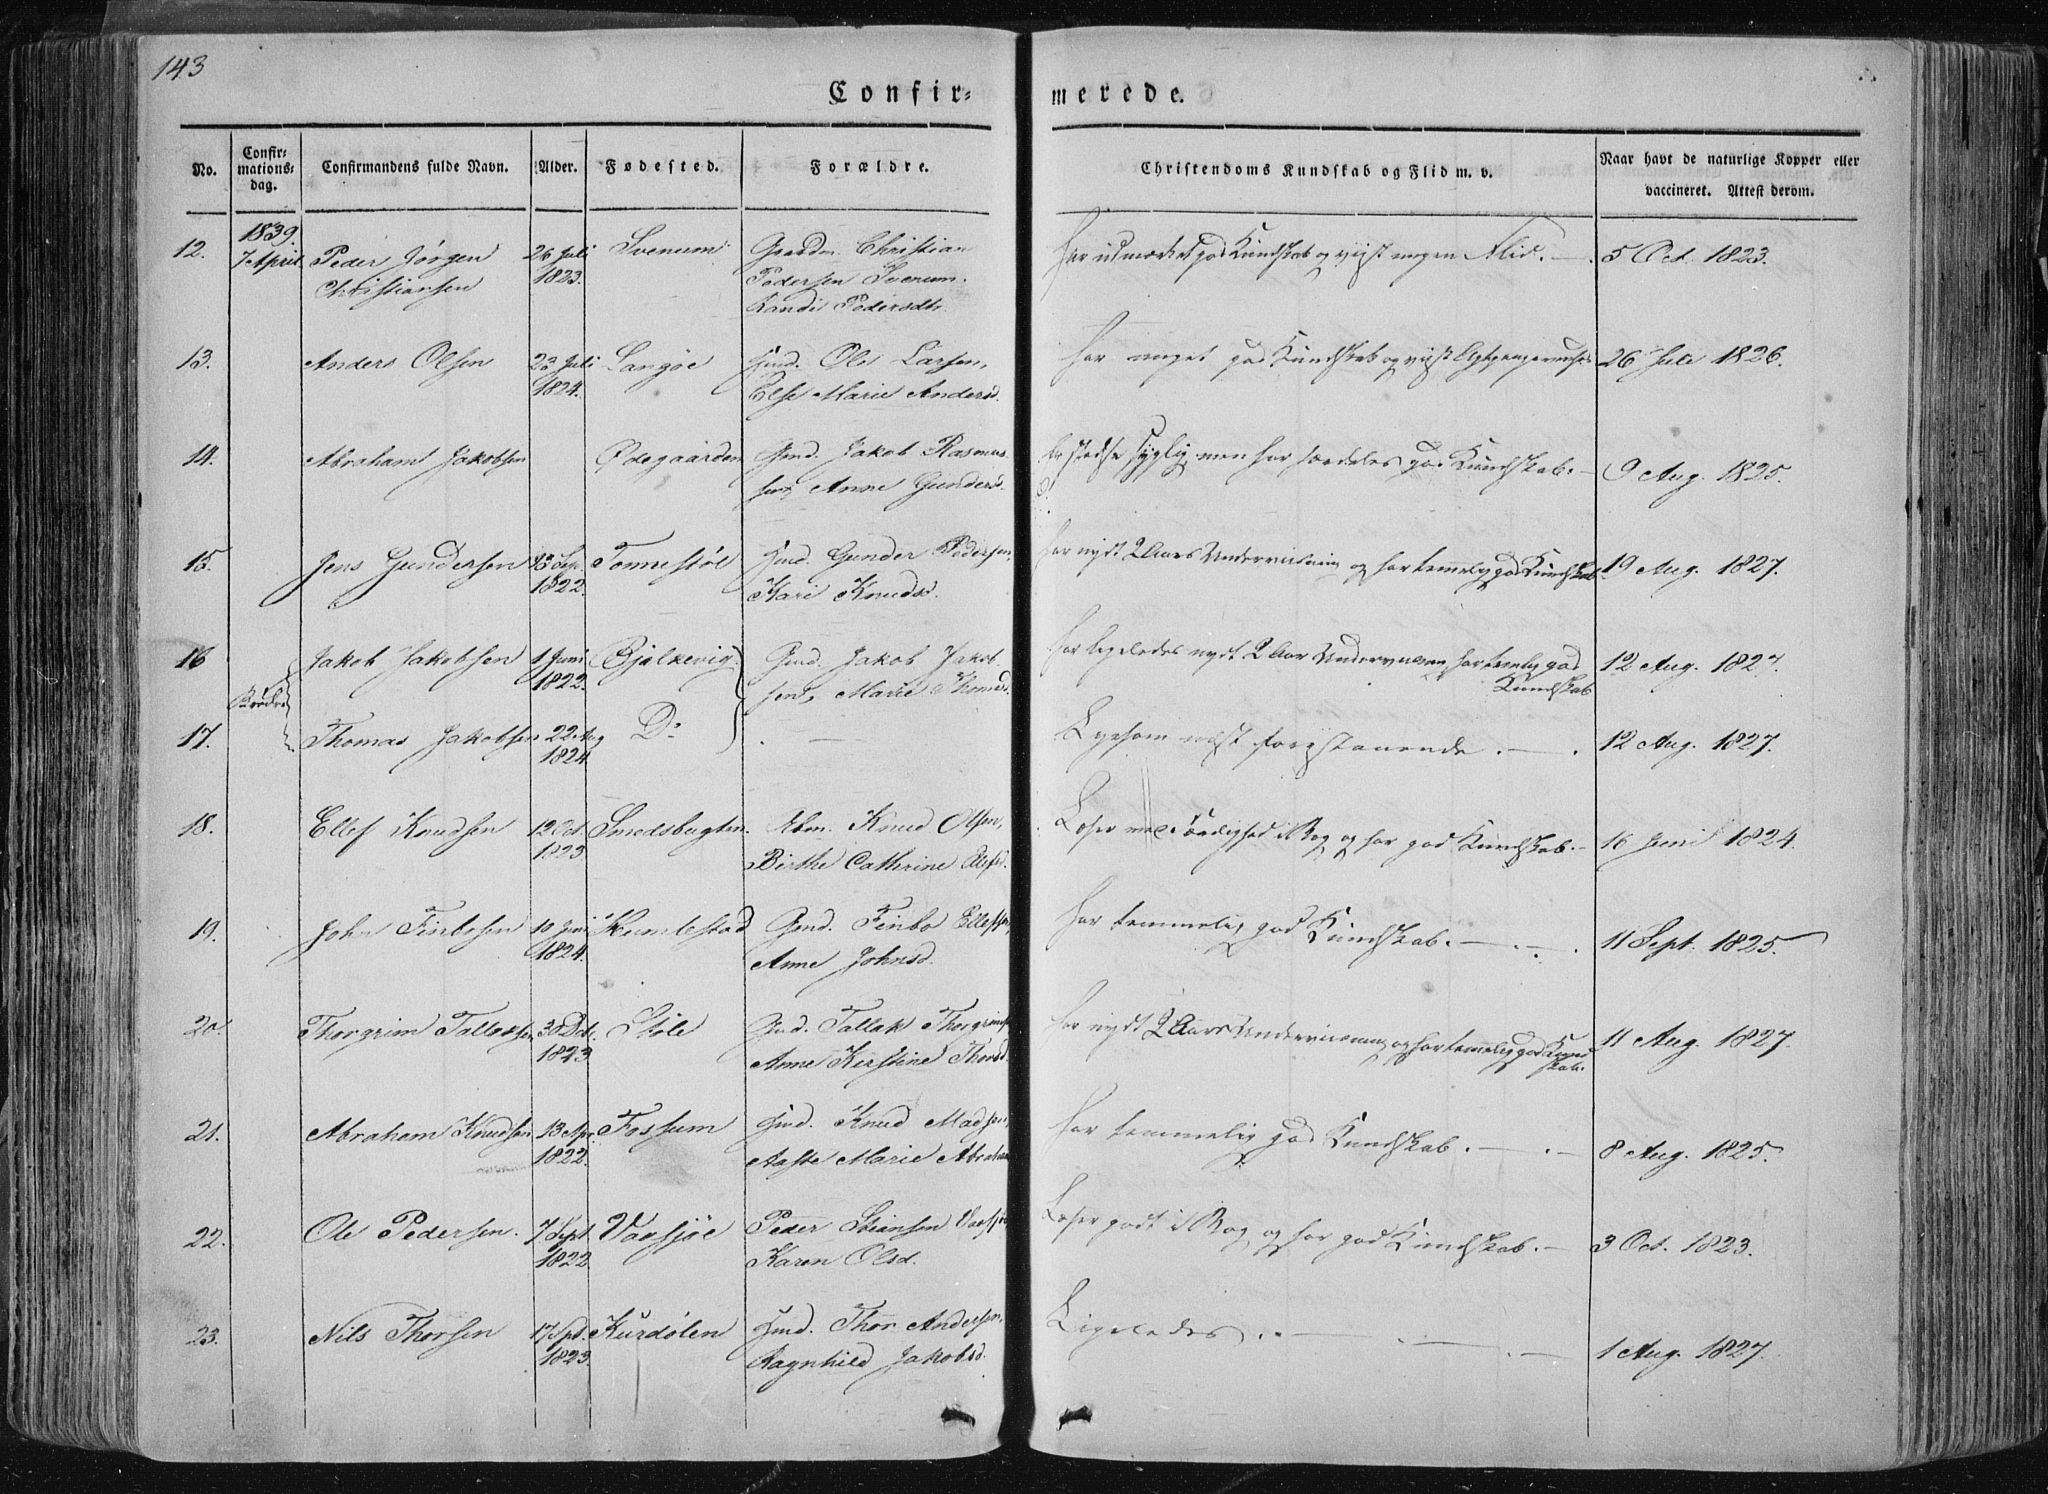 143
Confir= merede.
No.
Confir=
mations=
dag.
Confirmandens fulde Navn.
Alder.
Fødested.
Forældre.
Christendoms Kundskab og Flid m. v.
Naar havt de naturlige Kopper eller
vaccineret. Attest derom.
1839.
12. 7 April Peder Jørgen 26 Juli Svenum Christian har udmærket god Kundskab og viist megen Flid. 5 Oct. 1823.
Christiansen 1823. Pedersen Svenum.
Randi Pedersdt.
13. Anders Olsen 23 Juli Langøe Gmd. Ole Larsen, har meget god Kundskab og viist 26 Juli 1826.
1824. Else Marie Andersd.
14. Abraham Jakobsen Ødegaarden Gmd. Jakob Rasmus- men har særdeles god Kundskab. 9 Aug. 1825.
sen, Anne Gundersd.
15. Jens Gundersen 13 Sep. Tonnestøl Gmd. Gunder Pedersen, har nydt 2 Aars Underviisning og har temelig god Kundskab 19 Aug. 1827.
1822. Kari Knudsd.
16 Jakob Jakobsen 1 Juni Bjelkevig. Gmd. Jakob Jakob- har ligeledes nydt 2 Aar Underviisning, har temlig god 12 Aug. 1827.
1822. sen, Marie Thomasd. Kundskab
Brødre
17. Thomas Jakobsen 22 Aug Do Ligesom næst forestaaende. 12 Aug. 1827.
1824.
18. Ellef Knudsen 12 Oct. Smedsbugten. Knud Olsen, Læser med Færdighed i Bog og har god Kundskab. 16 Juni 1824.
1823 Birthe Cathrine Ellefsd.
19. John Finbosen 10 Juni Humlestad Gmd. Finbo Ellefsen, har temmelig god Kundskab. 11 Sept. 1825.
1824. Anne Johnsd.
20. Thorgrim Tallaksen 30 Dec. Støle Gmd. Tallak Thorgrims. har nydt 2 Aars Underviisning og har temmelig god Kund 11 Aug. 1827.
1823. Anne Kirstine Thorsd. skab.
21. Abraham Knudsen 13 Apr. Fossum Gmd. Knud Madsen, har temmelig god Kundskab. 8 Aug. 1825.
1822. Aaste Marie Abraham
22. Ole Pedersen. 7 Sept. Vansjøe Peder Steensen Læser godt i Bog og har god Kundskab. 3 Oct. 1823.
1822 Karen Olsd.
23. Nils Thorsen 17 Spt. Kurdølen Gmd. Thor Andersen, Ligeledes. 1 Aug. 1827.
1823. Ragnhild Jakobsd.